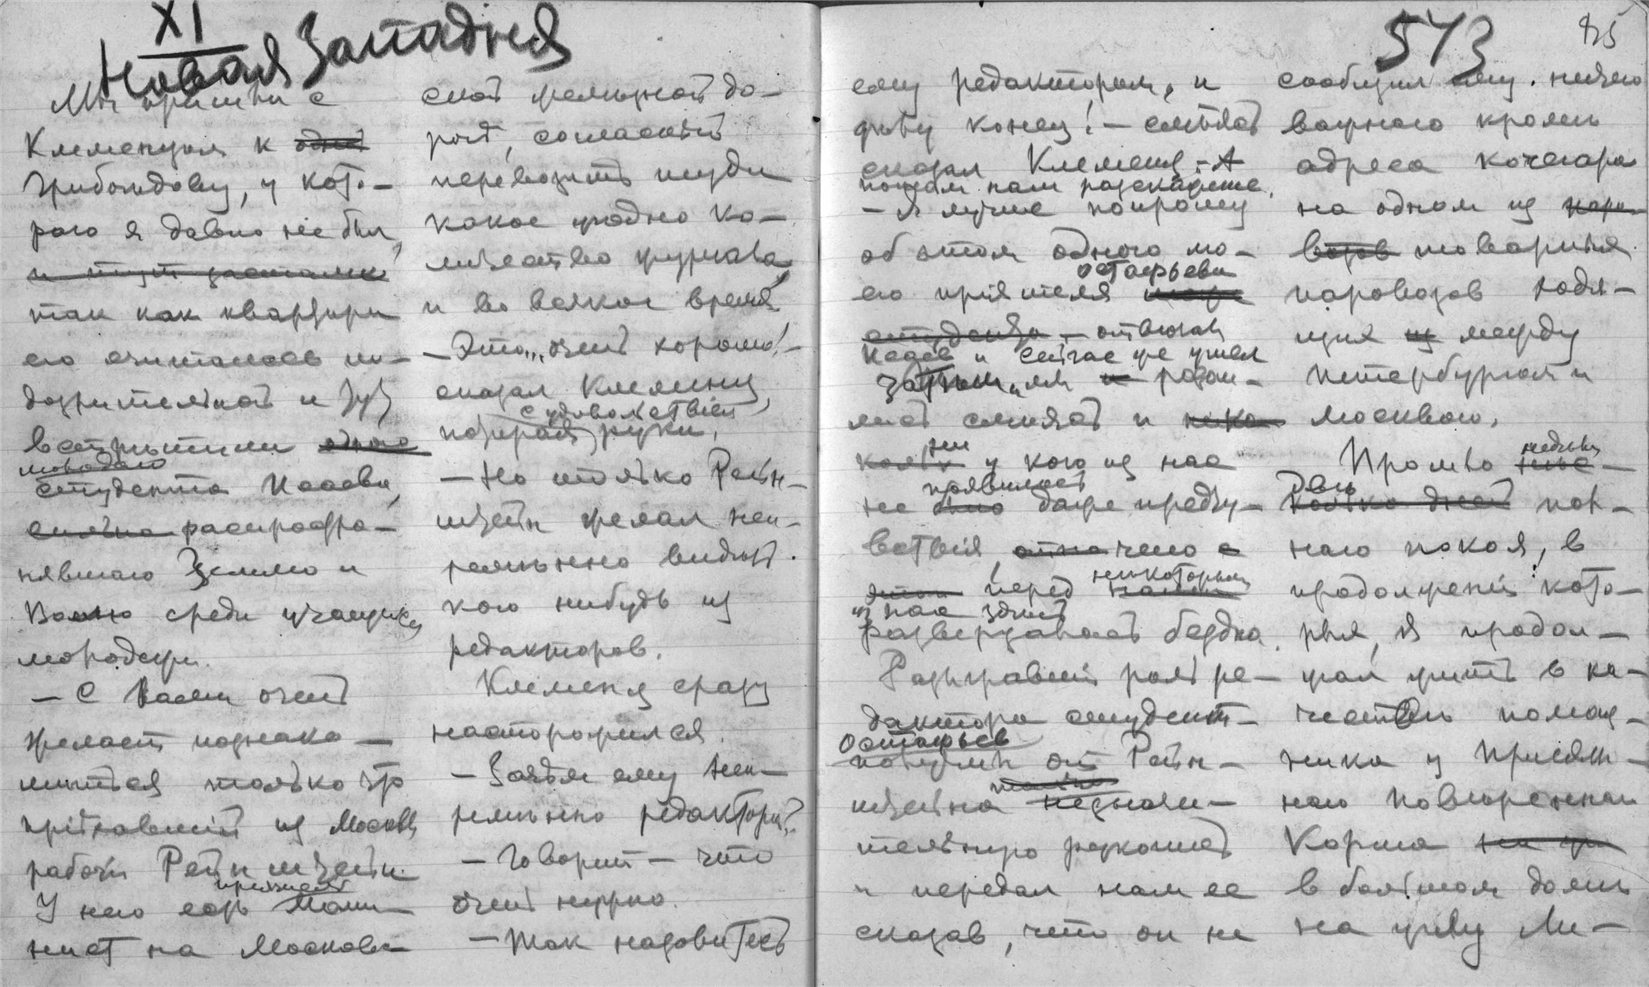 XI
Новая Западня
Мы пришли с
Клеменцом к одной
Грибоѣдову, у кото-
раго я давно не был,
и тут застали
так как квартира
его считалась по-
дозрительной и тут
встрѣтили одного
молодого
студента Исаева,
сильно распростра-
нявшаго Землю и
Волю среди учащейся
молодежи.
— С Вами очень
желает познако-
миться только что
пріѣхавшій из Москвы
рабочій Рейнштейн.
У него есть приятель маши-
нист на Московс-
ской желѣзной до-
роги, согласный
перевозить туда
какое угодно ко-
личество журнала
и во всякое время
— Это... очень хорошо! —
сказал Клеменц,
с удовольствіем
потирая руки.
— Но только Рейн-
штейн желал неп-
ремѣнно видѣть
кого нибудь из
редакторов.
Клеменц сразу
насторожился.
— Зачѣм ему неп-
ремѣнно редактора?
— Говорит — что
очень нужно.
— Так назовитесь
573
85
ему редактором, и
дѣлу конец! — смѣясь
сказал Клеменц. — А
потом нам разскажете.
— Я лучше попрошу
об этом одного мо-
его пріятеля Остафьева
студента — отвѣчал
Исаев и сейчас же ушел
за ним, мы разош-
лись смѣясь и ника
ни у кого из нас
не было появилось даже предчу-
вствія, чего
перед некоторыми
из нас здѣсь
разверзалась бездна.
Разыгравшій роль ре-
дактора студент
Остафьев
получил от Рейн-
штейна незначи-
тельную рукопись
и передал нам ее
сказав, что он не
сообщил ему ничего
важнаго кромѣ
адреса кочегара
на одном из паро
возов товарных
паровозов ходя-
щих из между
Петербургом и
Москвою.
Прошло недѣли
двѣ
колько дней пол-
наго покоя, в
продолженіи кото-
рых, я продол-
жал жить в ка-
честве помощ-
ника у присяж-
наго повѣреннаго
Корша на у
в большом домѣ
на углу Ли-